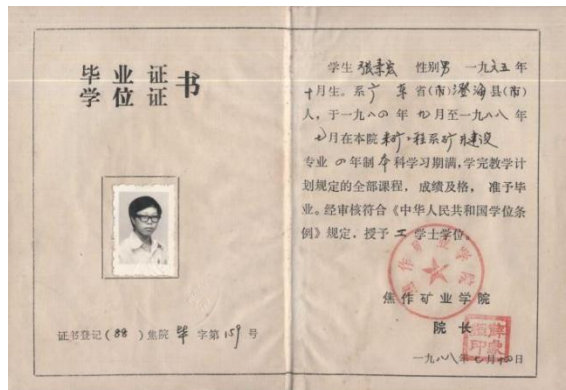 毕业证书
学位证
证书登记(88)焦院毕字第159号
学生 张 性别男 一九六五年
十月生。系广东省(市)澄海县(市)
人,于一九八四年九月至一九八八年
七月在本院采矿工程系矿井建设
专业四年制本科学习期满,学完教学计
划规定的全部课程,成绩及格,准予毕
业。经审核符合《中华人民共和国学位条
例》规定,授予工学士学位。
焦作矿业学院
焦作矿业学院
院长
一九八八年七月日